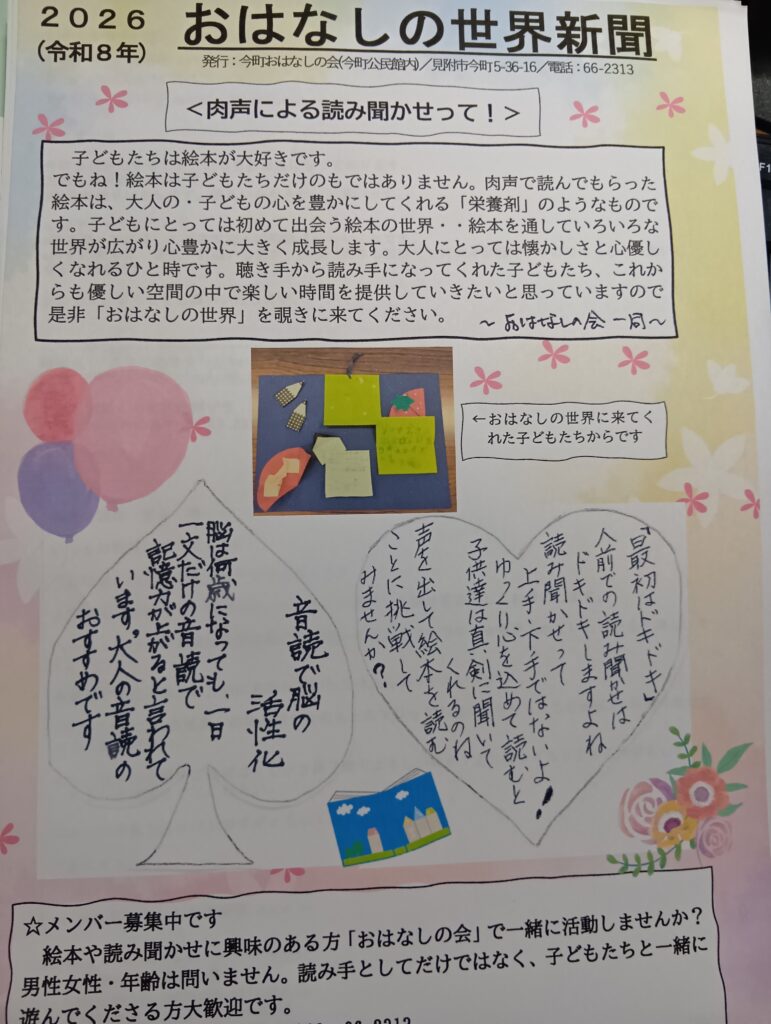 2026
(令和8年)
おはなしの世界新聞
発行：今町おはなしの会(今町公民館内)／見附市今町5-36-16／電話：66-2313
＜肉声による読み聞かせって！＞
子どもたちは絵本が大好きです。
でもね！絵本は子どもたちだけのもではありません。肉声で読んでもらった
絵本は、大人の・子どもの心を豊かにしてくれる「栄養剤」のようなもので
す。子どもにとっては初めて出会う絵本の世界・・絵本を通していろいろな
世界が広がり心豊かに大きく成長します。大人にとっては懐かしさと心優し
くなれるひと時です。聴き手から読み手になってくれた子どもたち、これか
らも優しい空間の中で楽しい時間を提供していきたいと思っていますので
是非「おはなしの世界」を覗きに来てください。
～おはなしの会 一同～
←おはなしの世界に来てく
れた子どもたちからです
「最初はドキドキ」
人前での読み聞かせは
ドキドキしますよね
読み聞かせって
上手・下手ではないよ！
ゆっくり心を込めて読むと
子供達は真剣に聞いて
くれるのね
声を出して絵本を読む
ことに挑戦して
みませんか？
音読で脳の
活性化
脳は何歳になっても、一日
一文だけの音読で
記憶力が上がると言われて
います。大人の音読の
おすすめです
☆メンバー募集中です
絵本や読み聞かせに興味のある方「おはなしの会」で一緒に活動しませんか？
男性女性・年齢は問いません。読み手としてだけではなく、子どもたちと一緒に
遊んでくださる方大歓迎です。